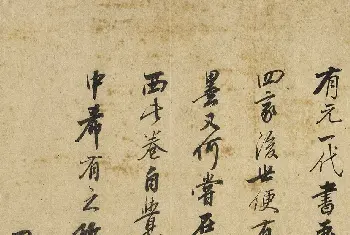 有元一代書畫
四家後世便有
曇又何嘗在
西此卷自
中希有之